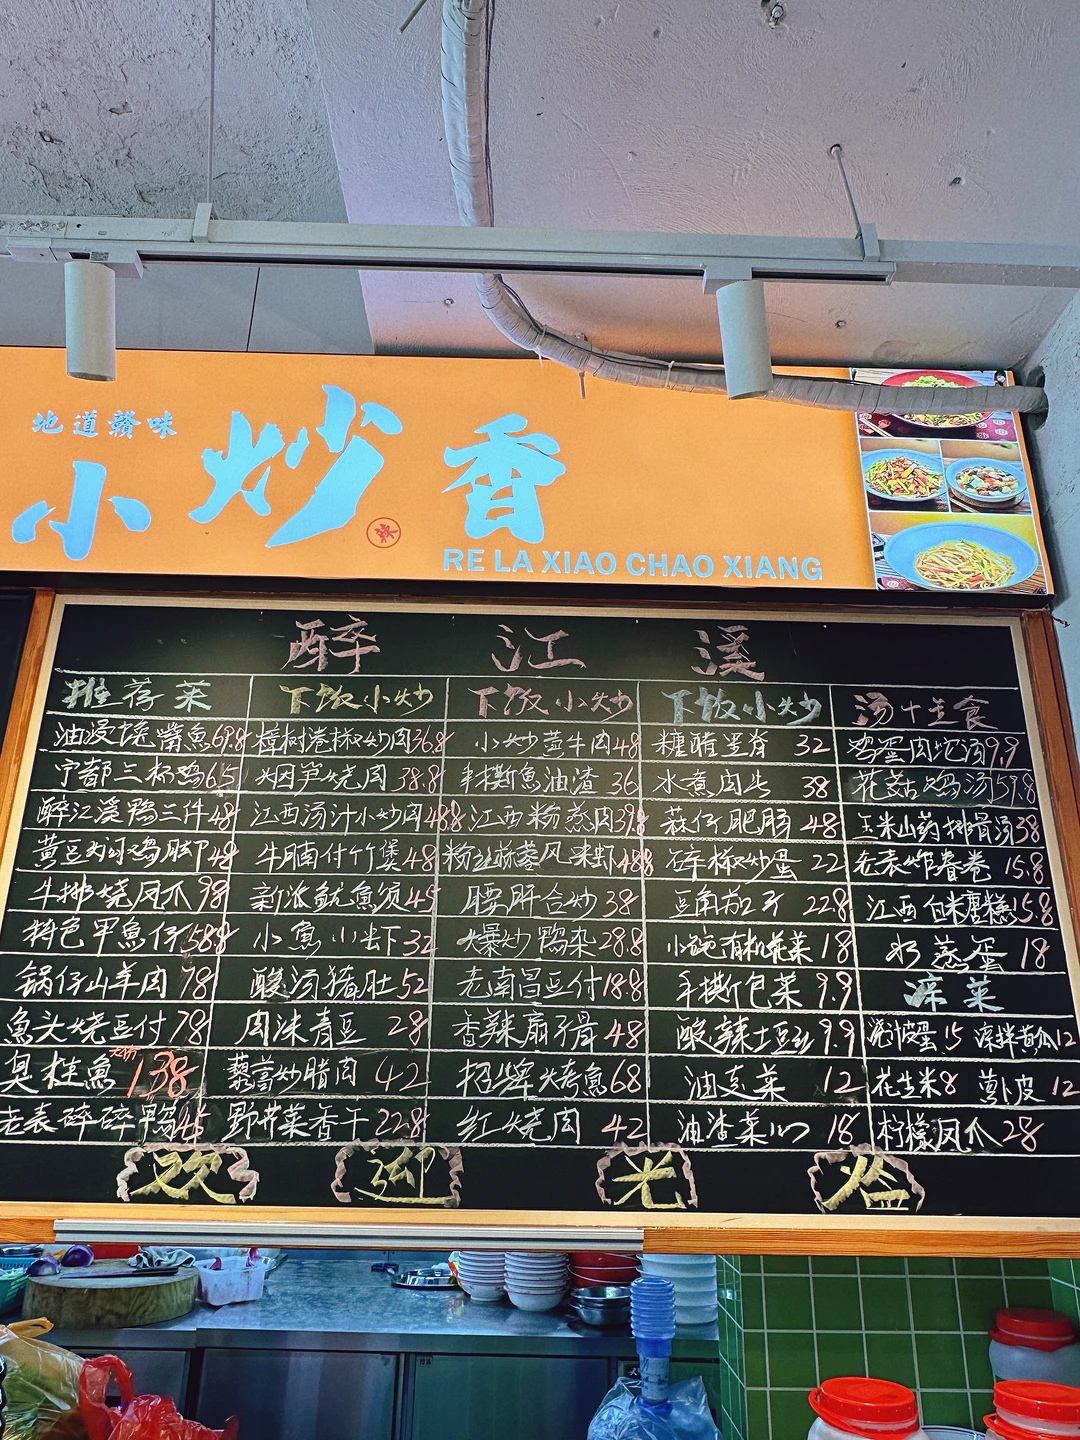 地道赣味
小炒香
辣
RE LA XIAO CHAO XIANG
醉 江 溪
推荐菜 下饭小炒 下饭小炒 下饭小炒 汤+主食
油浸烧嘴魚69.8 樟树港椒炒肉36.8 小炒黄牛肉48 糖醋里脊 32 鸡蛋肉坨汤9.9
宁都三杯鸡65 烟笋烧肉 38.8 手撕魚油渣 36 水煮肉片 38 花菇鸡汤59.8
醉江溪鸭三件48 江西汤汁小炒肉48.8 江西粉蒸肉39.8 蒜仔肥肠 48 玉米山药排骨汤38
黄豆焖鸡脚48 牛腩付竹煲48 粉丝蒜蓉凤尾虾48.8 碎椒炒蛋 22 老表炸春卷 15.8
牛排烧凤爪98 新派鱿魚须45 腰肝合炒 38 豆角茄子 22.8 江西白米糖糕15.8
特色甲魚仔58.8 小魚小虾32 爆炒鸭杂28.8 小锅有机花菜 18 水蒸蛋 18
锅仔山羊肉 78 酸汤猪肚52 老南昌豆付18.8 手撕包菜 9.9 凉菜
魚头烧豆付78 肉沫青豆 28 香辣扇子骨48 酸辣土豆丝9.9 烧皮蛋15 凉拌黄瓜12
臭桂魚 138 藜蒿炒腊肉 42 招牌烤魚68 油麦菜 12 花生米8 萝卜皮 12
老表碎碎鸭45 野芹菜香干22.8 红烧肉 42 油渣菜心 18 柠檬凤爪 28
欢 迎 光 临